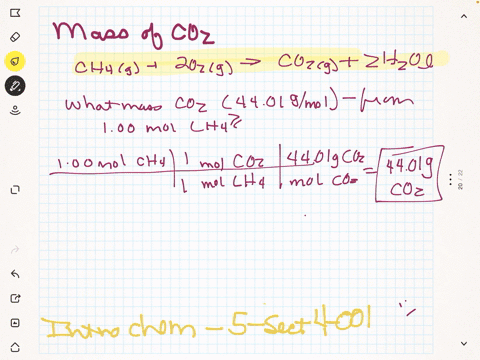 Mass of CO2
CH4(g) + 2O2(g) → CO2(g) + 2H2O(l)
What mass CO2 (44.01g/mol) - from
1.00 mol CH4?
1.00 mol CH4 | 1 mol CO2 | 44.01g CO2 = 44.01g
1 mol CH4 | mol CO2 CO2
Intro chem - 5 - Sect 4-001
20 / 22